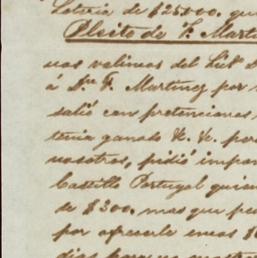 Loteria de $25000. que
Pleito de F. Mart
nos valimos del Lid.
á Dn. F. Martinez por
salió con pretenciones
tenia ganado &. &. por
nosotros, pidió
Castillo Portugal quien
de $300. mas que
por ofrecerle
dias